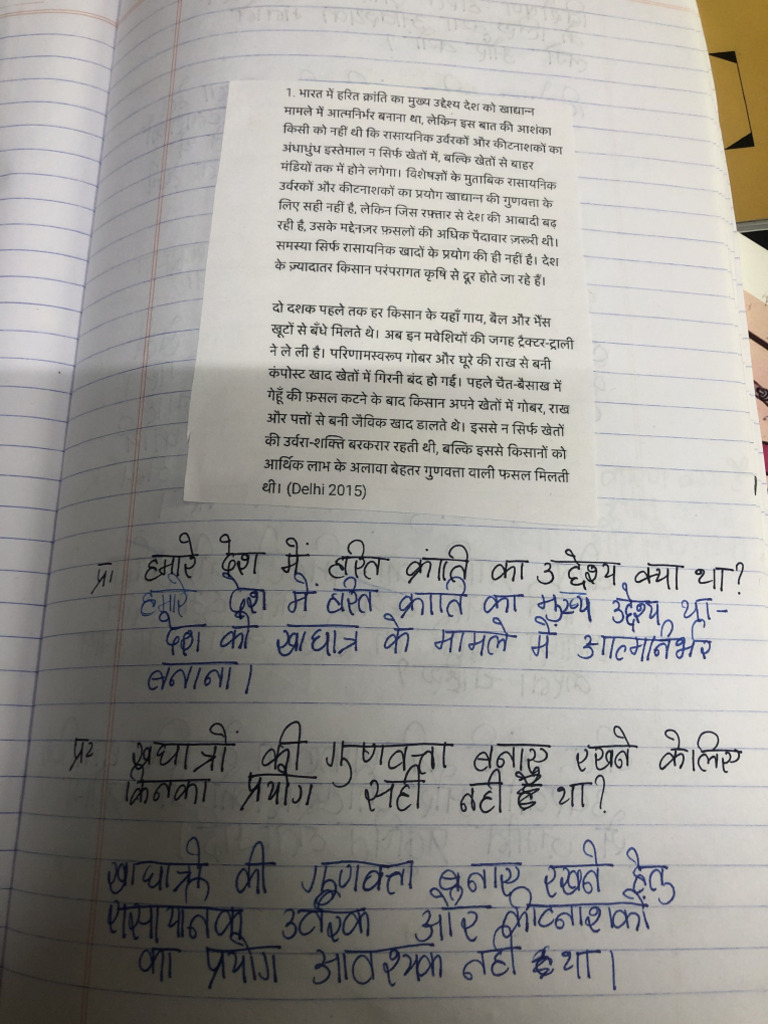 1. भारत में हरित क्रांति का मुख्य उद्देश्य देश को खाद्यान्न
मामले में आत्मनिर्भर बनाना था, लेकिन इस बात की आशंका
किसी को नहीं थी कि रासायनिक उर्वरकों और कीटनाशकों का
अंधाधुंध इस्तेमाल न सिर्फ खेतों में, बल्कि खेतों से बाहर
मंडियों तक में होने लगेगा। विशेषज्ञों के मुताबिक रासायनिक
उर्वरकों और कीटनाशकों का प्रयोग खाद्यान्न की गुणवत्ता के
लिए सही नहीं है, लेकिन जिस रफ्तार से देश की आबादी बढ़
रही है, उसके मद्देनज़र फ़सलों की अधिक पैदावार ज़रूरी थी।
समस्या सिर्फ रासायनिक खादों के प्रयोग की ही नहीं है। देश
के ज़्यादातर किसान परंपरागत कृषि से दूर होते जा रहे हैं।
दो दशक पहले तक हर किसान के यहाँ गाय, बैल और भैंस
खूटों से बँधे मिलते थे। अब इन मवेशियों की जगह ट्रैक्टर-ट्राली
ने ले ली है। परिणामस्वरूप गोबर और घूरे की राख से बनी
कंपोस्ट खाद खेतों में गिरनी बंद हो गई। पहले चैत-बैसाख में
गेहूँ की फ़सल कटने के बाद किसान अपने खेतों में गोबर, राख
और पत्तों से बनी जैविक खाद डालते थे। इससे न सिर्फ खेतों
की उर्वरा-शक्ति बरकरार रहती थी, बल्कि इससे किसानों को
आर्थिक लाभ के अलावा बेहतर गुणवत्ता वाली फसल मिलती
थी। (Delhi 2015)
प्र1 हमारे देश में हरित क्रांति का उद्देश्य क्या था?
हमारे देश में हरित क्राति का मुख्य उद्देश्य था-
देश को खाघान्न के मामले में आत्मनिर्भर
बनाना।
प्र2 खाघान्नों की गुणवत्ता बनाए रखने केलिए
किनका प्रयोग सही नही था?
खाघान्नो की गुणवत्ता बनाए रखने हेतु
रासायनिक उर्वरक और कीटनाशकों
का प्रयोग आवश्यक नही था।